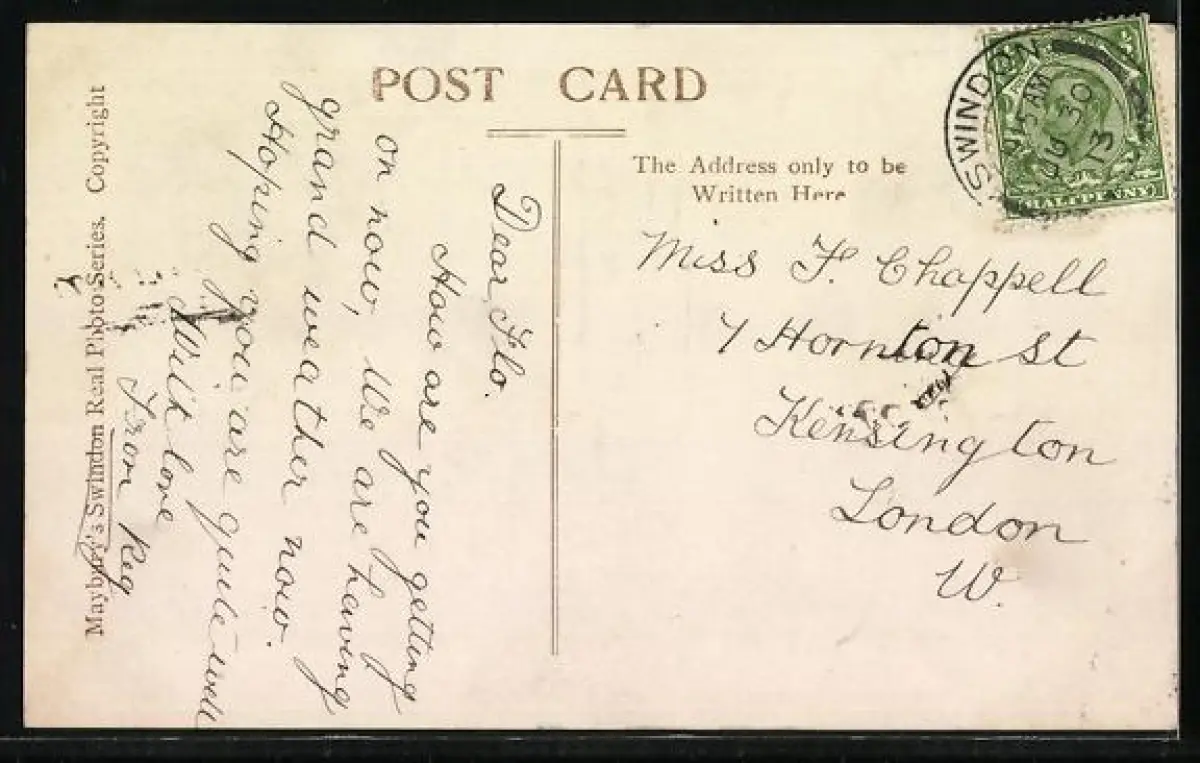 POST CARD
The Address only to be
Written Here
SWINDON
AM
JU 30
13
HALFPENNY
Miss F. Chappell
7 Hornton St
Kensington
London
W.
Dear Flo.
How are you getting
on now, We are having
grand weather now.
Hoping you are quite well
With love
From Reg
Maybury's Swindon Real Photo Series. Copyright